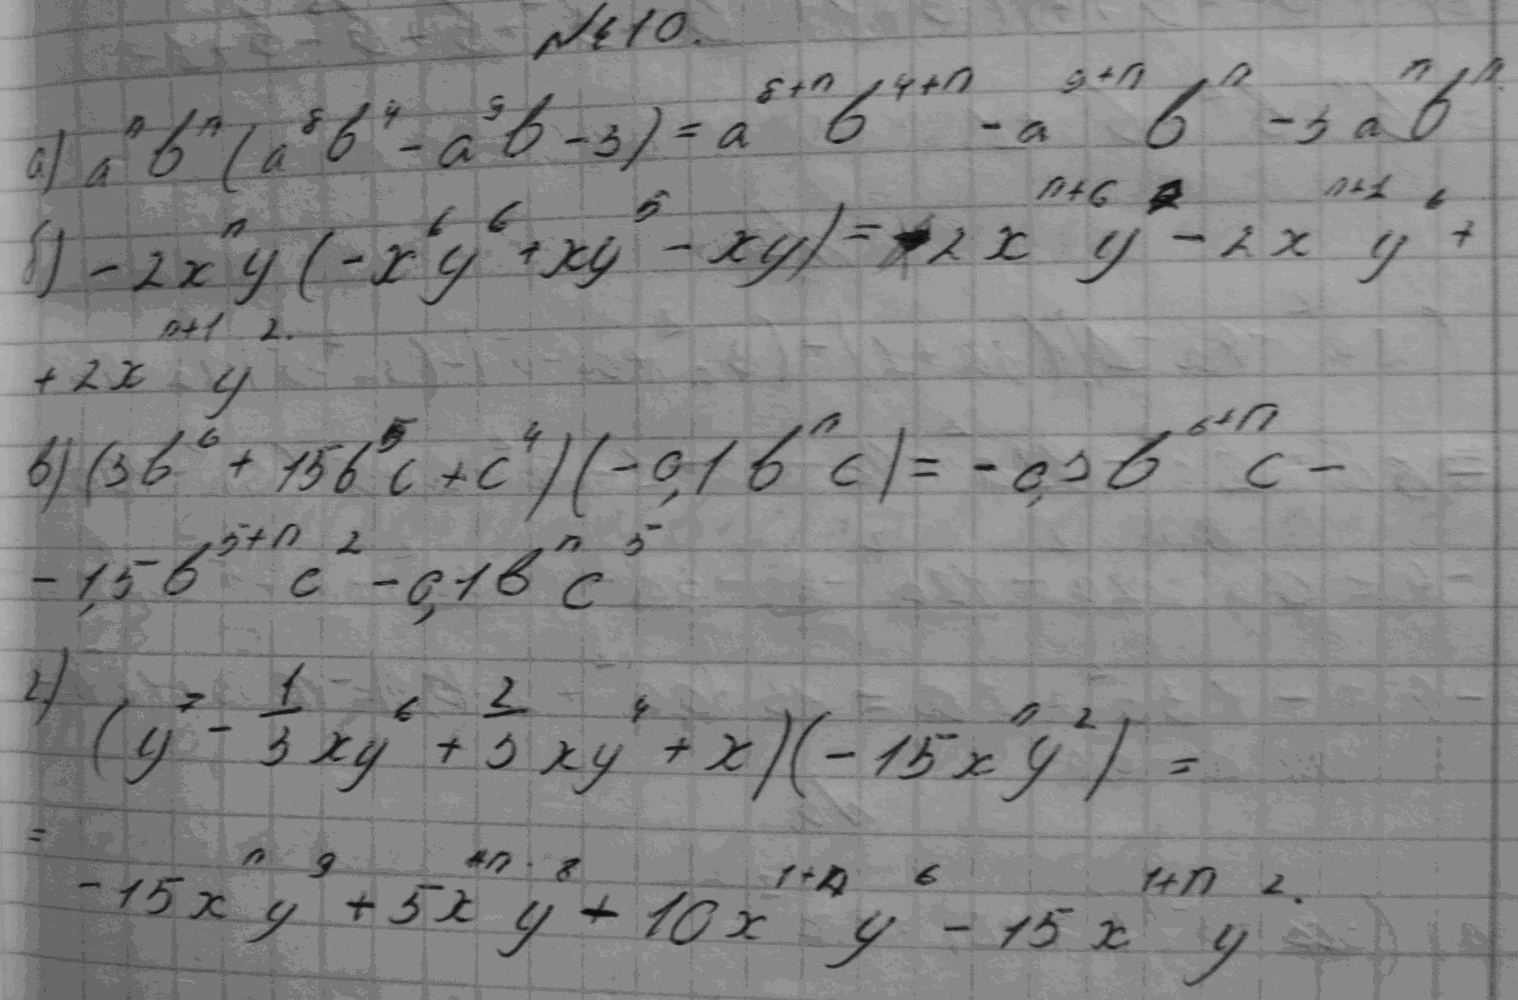 №410.
а) aⁿbⁿ(a⁸b⁴ - a⁹b - 3) = a⁸⁺ⁿb⁴⁺ⁿ - a⁹⁺ⁿbⁿ - 3aⁿbⁿ.
б) -2xⁿy(-x⁶y⁶ + xy⁵ - xy) = 2xⁿ⁺⁶y - 2xⁿ⁺¹y⁶ +
+ 2xⁿ⁺¹y².
в) (3b⁶ + 15b⁵c + c⁴)(-0,1bⁿc) = -0,3b⁶⁺ⁿc -
- 1,5b⁵⁺ⁿc² - 0,1bⁿc⁵
г) (y⁷ - 1/3xy⁶ + 2/3xy⁴ + x)(-15xⁿy²) =
= -15xⁿy⁹ + 5x⁺ⁿy⁸ + 10x¹⁺ⁿy⁶ - 15x¹⁺ⁿy².